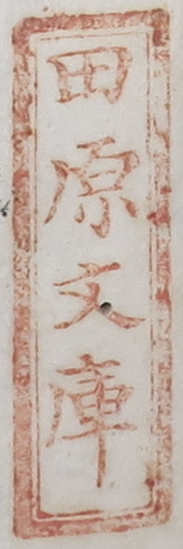 田原文庫